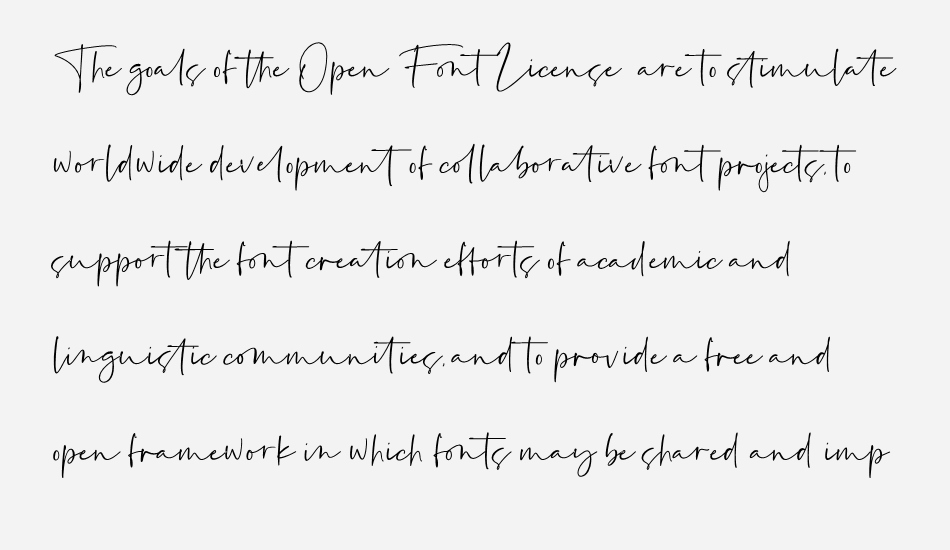 The goals of the Open Font License are to stimulate
worldwide development of collaborative font projects, to
support the font creation efforts of academic and
linguistic communities, and to provide a free and
open framework in which fonts may be shared and imp